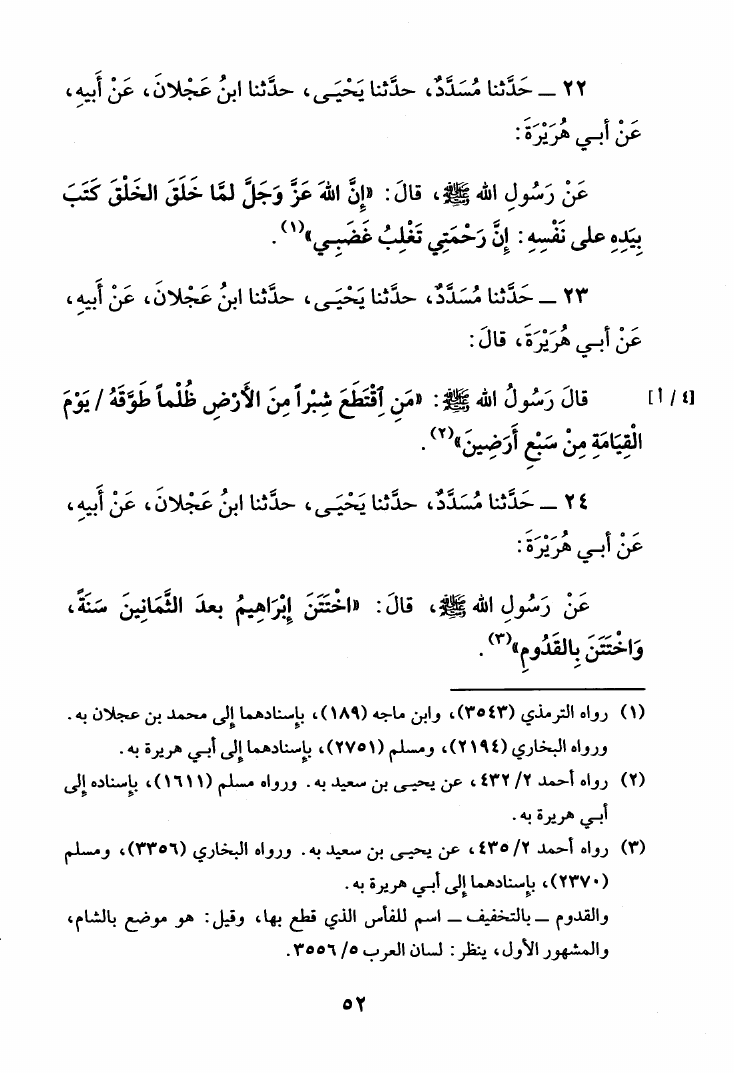 ٢٢ ـ حَدَّثنا مُسَدَّدٌ، حدَّثنا يَحْيَـى، حدَّثنا ابنُ عَجْلانَ، عَنْ أَبيهِ،
عَنْ أبـي هُرَيْرَةَ:
عَنْ رَسُولِ الله ﷺ، قالَ: «إِنَّ اللهَ عَزَّ وَجَلَّ لمَّا خَلَقَ الخَلْقَ كَتَبَ
بِيَدِهِ على نَفْسِهِ: إِنَّ رَحْمَتِي تَغْلِبُ غَضَبِـي»(١).
٢٣ ـ حَدَّثنا مُسَدَّدٌ، حدَّثنا يَحْيَـى، حدَّثنا ابنُ عَجْلانَ، عَنْ أَبيهِ،
عَنْ أبـي هُرَيْرَةَ، قالَ:
[٤/ أ] قالَ رَسُولُ الله ﷺ: «مَنِ اقْتَطَعَ شِبْراً مِنَ الأَرْضِ ظُلْماً طَوَّقَهُ / يَوْمَ
الْقِيَامَةِ مِنْ سَبْعِ أَرَضِينَ»(٢).
٢٤ ـ حَدَّثنا مُسَدَّدٌ، حدَّثنا يَحْيَـى، حدَّثنا ابنُ عَجْلانَ، عَنْ أَبيهِ،
عَنْ أبـي هُرَيْرَةَ:
عَنْ رَسُولِ الله ﷺ، قالَ: «اخْتَتَنَ إِبْرَاهِيمُ بعدَ الثَّمَانِينَ سَنَةً،
وَاخْتَتَنَ بِالقَدُومِ»(٣).
(١) رواه الترمذي (٣٥٤٣)، وابن ماجه (١٨٩)، بإسنادهما إلى محمد بن عجلان به.
ورواه البخاري (٢١٩٤)، ومسلم (٢٧٥١)، بإسنادهما إلى أبـي هريرة به.
(٢) رواه أحمد ٢/ ٤٣٢، عن يحيـى بن سعيد به. ورواه مسلم (١٦١١)، بإسناده إلى
أبـي هريرة به.
(٣) رواه أحمد ٢/ ٤٣٥، عن يحيـى بن سعيد به. ورواه البخاري (٣٣٥٦)، ومسلم
(٢٣٧٠)، بإسنادهما إلى أبـي هريرة به.
والقدوم ـ بالتخفيف ـ اسم للفأس الذي قطع بها، وقيل: هو موضع بالشام،
والمشهور الأول، ينظر: لسان العرب ٥/ ٣٥٥٦.
٥٢